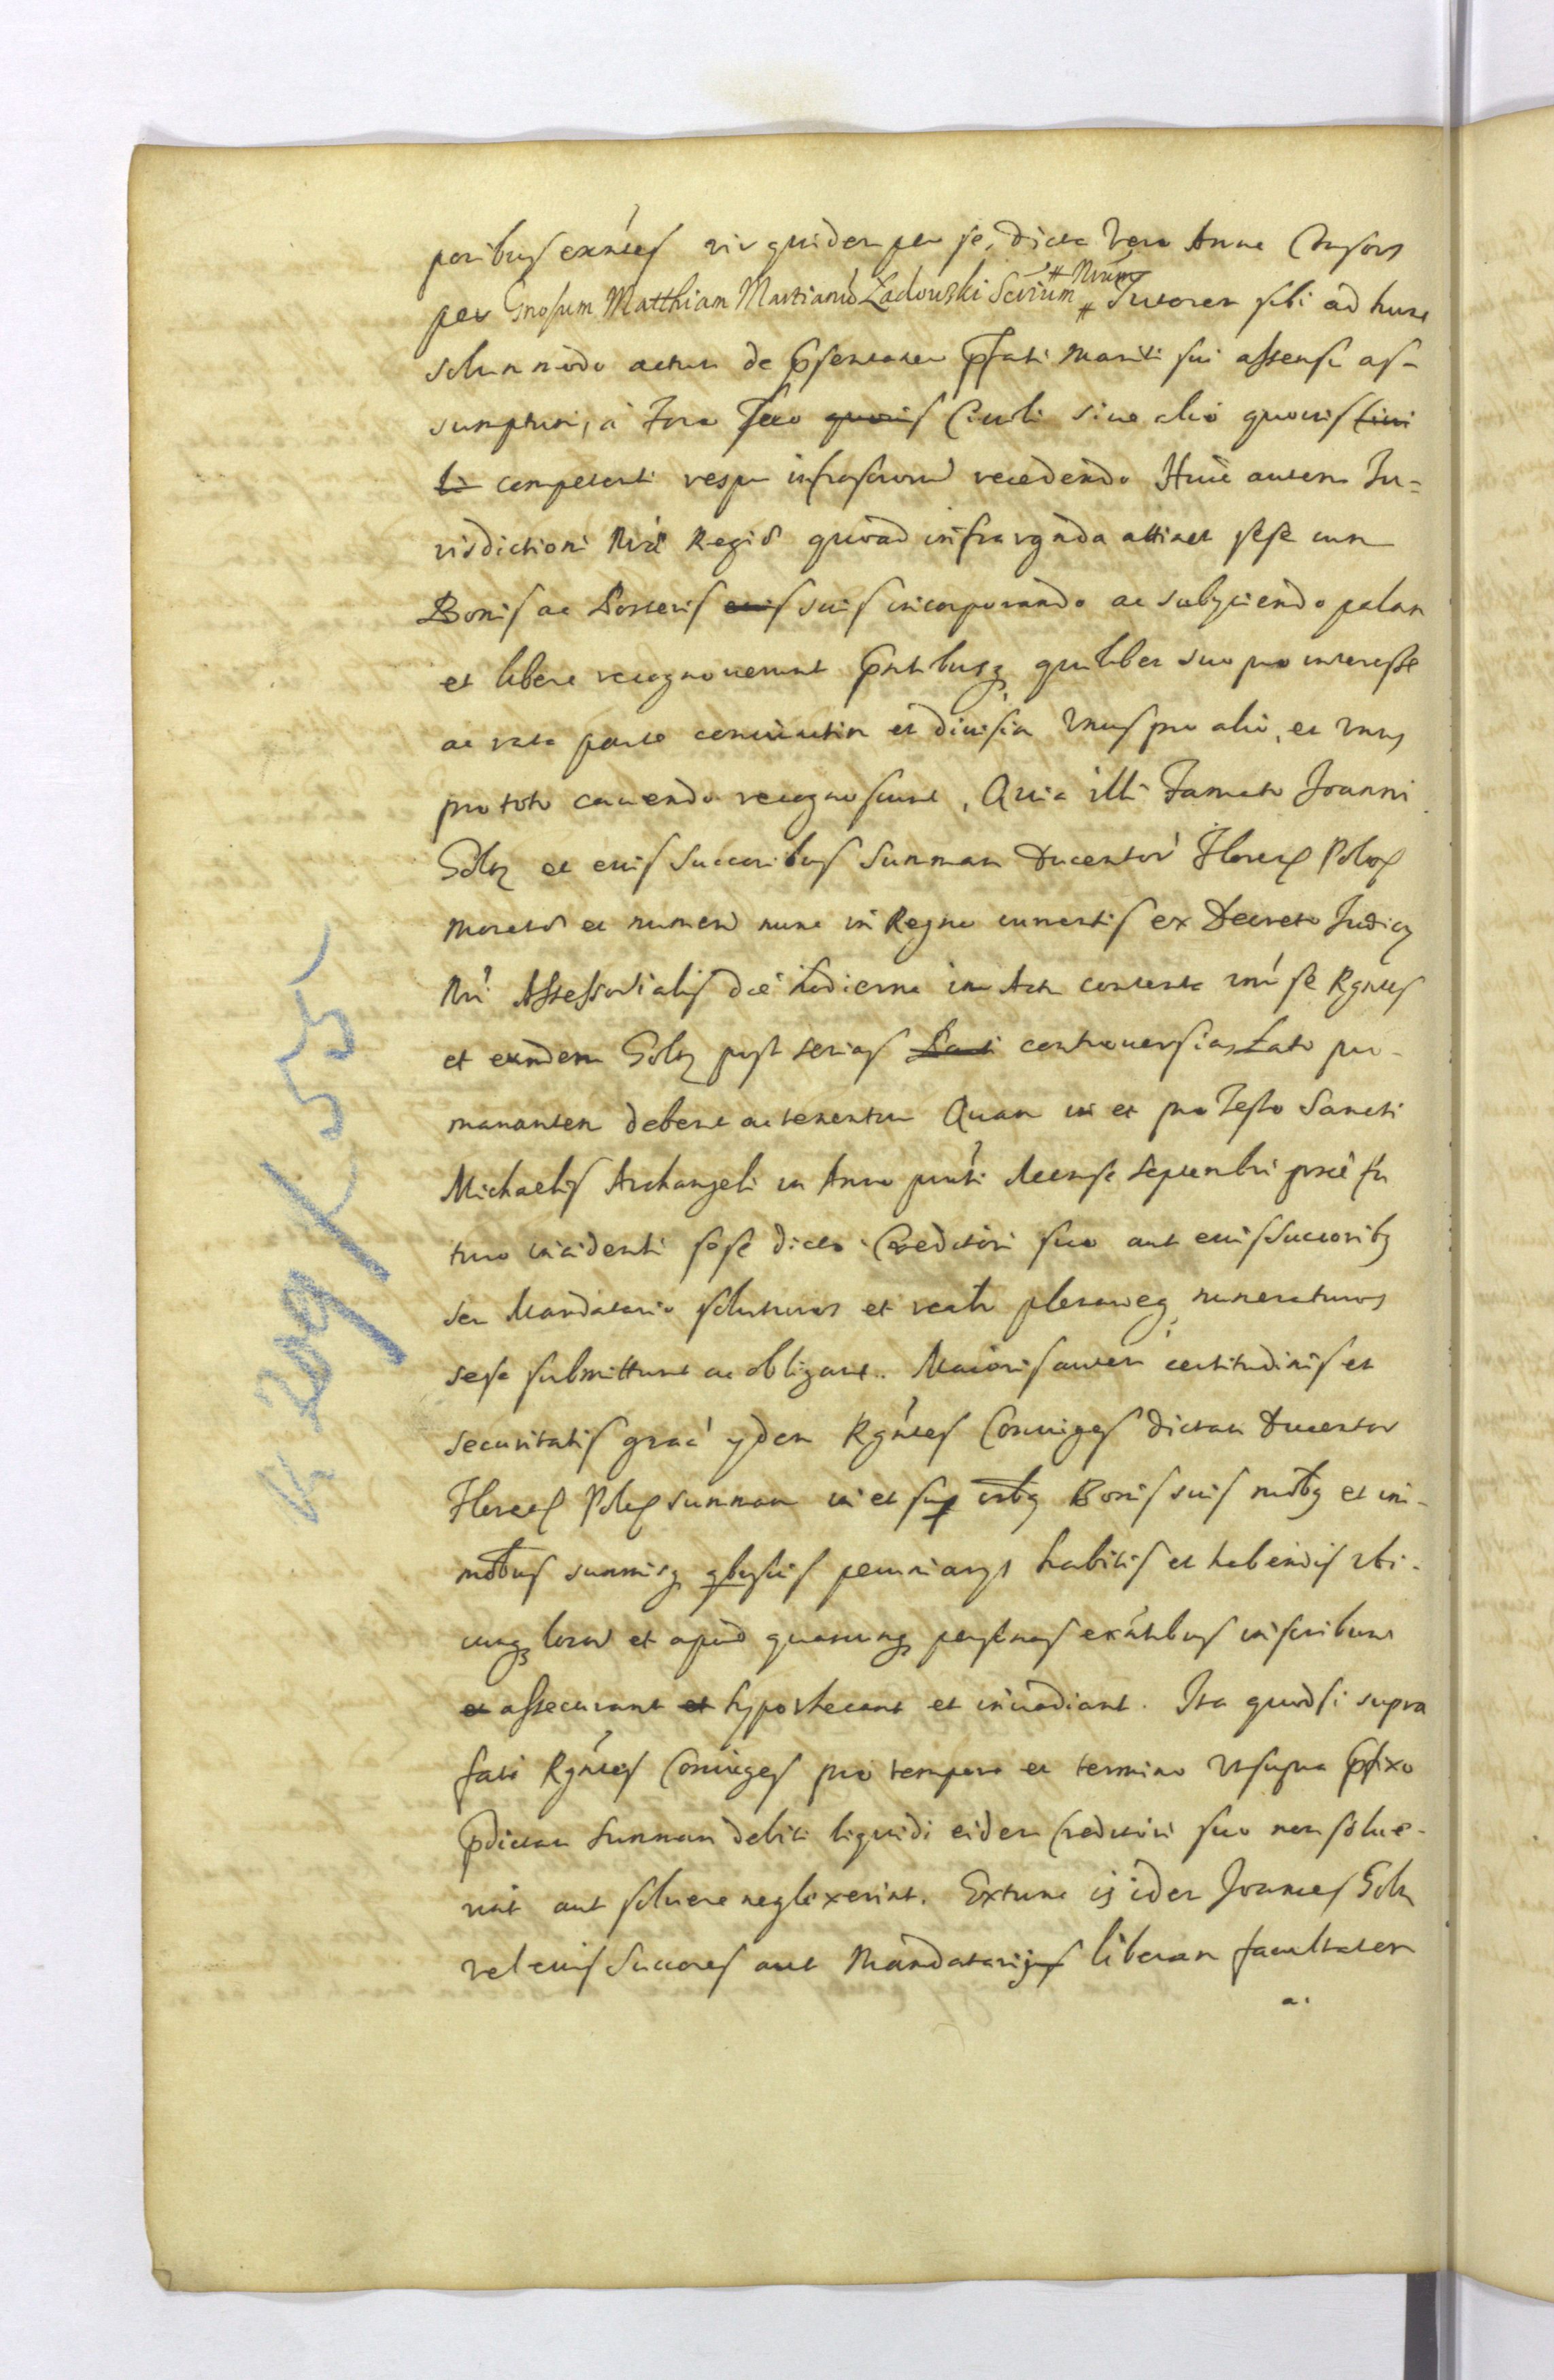 poribus exńtes vir quidem per se, dicta Vero Anna Consors
per Gnosum Matthiam Martianũ Ladowski Secrium # Nrum # Tutorem sibi ad hunc
solummodo actum de Consensu pfati Mariti sui assensu as-
sumptum, à Foro suo quovis Civili sive alio quovis Civi
li competenti respu infrascrorũ recedendo Huic autem Ju=
risdictioni Nrae Regiae quoad infra rgnda attinet sese cum
Bonis ac Posteris suis incorporando ac subyciendo palam
et libere recognoverunt Pntibusq quilibet suo pro interesse
ac rata parte coniunctim et divisim Unus pro alio, et unus
pro toto cavendo recognoscunt, Quia illi Famato Joanni
Goltz et eius Succoribus Summam Ducentorũ Florenor Polonor
Moneta et numeri nunc in Regno currentis ex Decreto Judicij
Nri Assessorialis die hodierna in Actu contento inter se Rgntes
et eundem Goltz post serias Lati controversias Lato pro-
manantem debent ac tenentur Quam in et pro Festo Sancti
Michaelis Archangeli in Anno pnti Mense Septembri proxe fu
turo incidenti sese dicto Creditori suo aut eius Succoribq
seu Mandatario soluturos et realr plenarieq numeraturos
sese submittunt ac obligant. Maioris autem certitudinis et
securitatis graã ijdem Rgntes Coniuges dictam Ducentor
Florenor Polonor summam in et sup Bonis suis mobq et im-
mobus summisq quibusvis pecuniarijs habitis et habendis ubi-
cunq locorũ et apud quascunq personas exńtibus inscribunt
et assecurant et hypothecant et invadiant. Ita quod si supra
fati Rgntes Coniuges pro tempore et termino Ut supra pfixo
pdictam Summam debiti liquidi eidem Creditori suo non solve-
rint aut solvere neglexerint. Extunc is idem Joannes Goltz
vel eius Succores aut Mandatarijus liberam facultatem
K 209 K 55